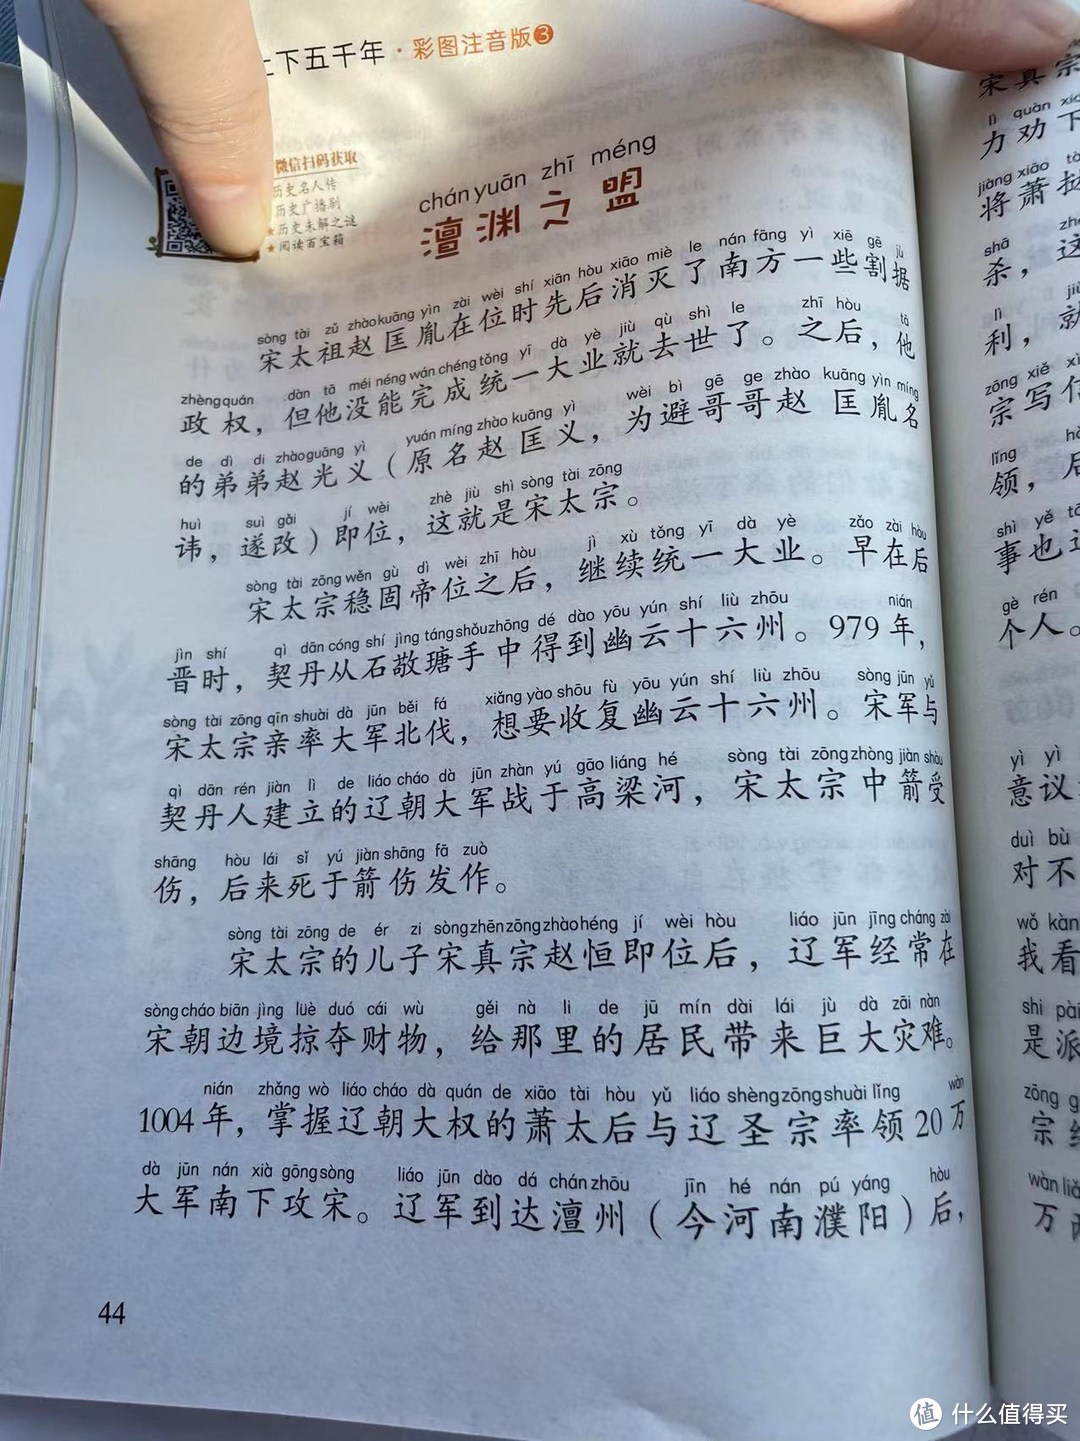 上下五千年·彩图注音版3
微信扫码获取
历史名人传
历史广播剧
★历史未解之谜
★阅读百宝箱
chán yuān zhī méng
澶渊之盟
sòng tài zǔ zhào kuāng yìn zài wèi shí xiān hòu xiāo miè le nán fāng yì xiē gē jù
宋太祖赵匡胤在位时先后消灭了南方一些割据
zhèng quán dàn tā méi néng wán chéng tǒng yī dà yè jiù qù shì le zhī hòu tā
政权，但他没能完成统一大业就去世了。之后，他
de dì di zhào guāng yì yuán míng zhào kuāng yì wèi bì gē ge zhào kuāng yìn míng
的弟弟赵光义（原名赵匡义，为避哥哥赵匡胤名
huì suì gǎi jí wèi zhè jiù shì sòng tài zōng
讳，遂改）即位，这就是宋太宗。
sòng tài zōng wěn gù dì wèi zhī hòu jì xù tǒng yī dà yè zǎo zài hòu
宋太宗稳固帝位之后，继续统一大业。早在后
jìn shí qì dān cóng shí jìng táng shǒu zhōng dé dào yōu yún shí liù zhōu nián
晋时，契丹从石敬瑭手中得到幽云十六州。979年，
sòng tài zōng qīn shuài dà jūn běi fá xiǎng yào shōu fù yōu yún shí liù zhōu sòng jūn yǔ
宋太宗亲率大军北伐，想要收复幽云十六州。宋军与
qì dān rén jiàn lì de liáo cháo dà jūn zhàn yú gāo liáng hé sòng tài zōng zhòng jiàn shòu
契丹人建立的辽朝大军战于高梁河，宋太宗中箭受
shāng hòu lái sǐ yú jiàn shāng fā zuò
伤，后来死于箭伤发作。
sòng tài zōng de ér zi sòng zhēn zōng zhào héng jí wèi hòu liáo jūn jīng cháng zài
宋太宗的儿子宋真宗赵恒即位后，辽军经常在
sòng cháo biān jìng lüè duó cái wù gěi nà li de jū mín dài lái jù dà zāi nàn
宋朝边境掠夺财物，给那里的居民带来巨大灾难。
nián zhǎng wò liáo cháo dà quán de xiāo tài hòu yǔ liáo shèng zōng shuài lǐng wàn
1004年，掌握辽朝大权的萧太后与辽圣宗率领20万
dà jūn nán xià gōng sòng liáo jūn dào dá chán zhōu jīn hé nán pú yáng hòu
大军南下攻宋。辽军到达澶州（今河南濮阳）后，
44
宋真宗
lì quàn xià
力劝下
jiàng xiāo tà
将萧挞
shā
杀，这
lì jiù
利，就
zōng xiě xìn
宗写信
lǐng
领，后
shì yě
事也
gè rén
个人。
yì yì
意议
duì bù
对不
wǒ kàn
我看
shì pài
是派
zōng
宗
wàn liǎng
万两
值 什么值得买